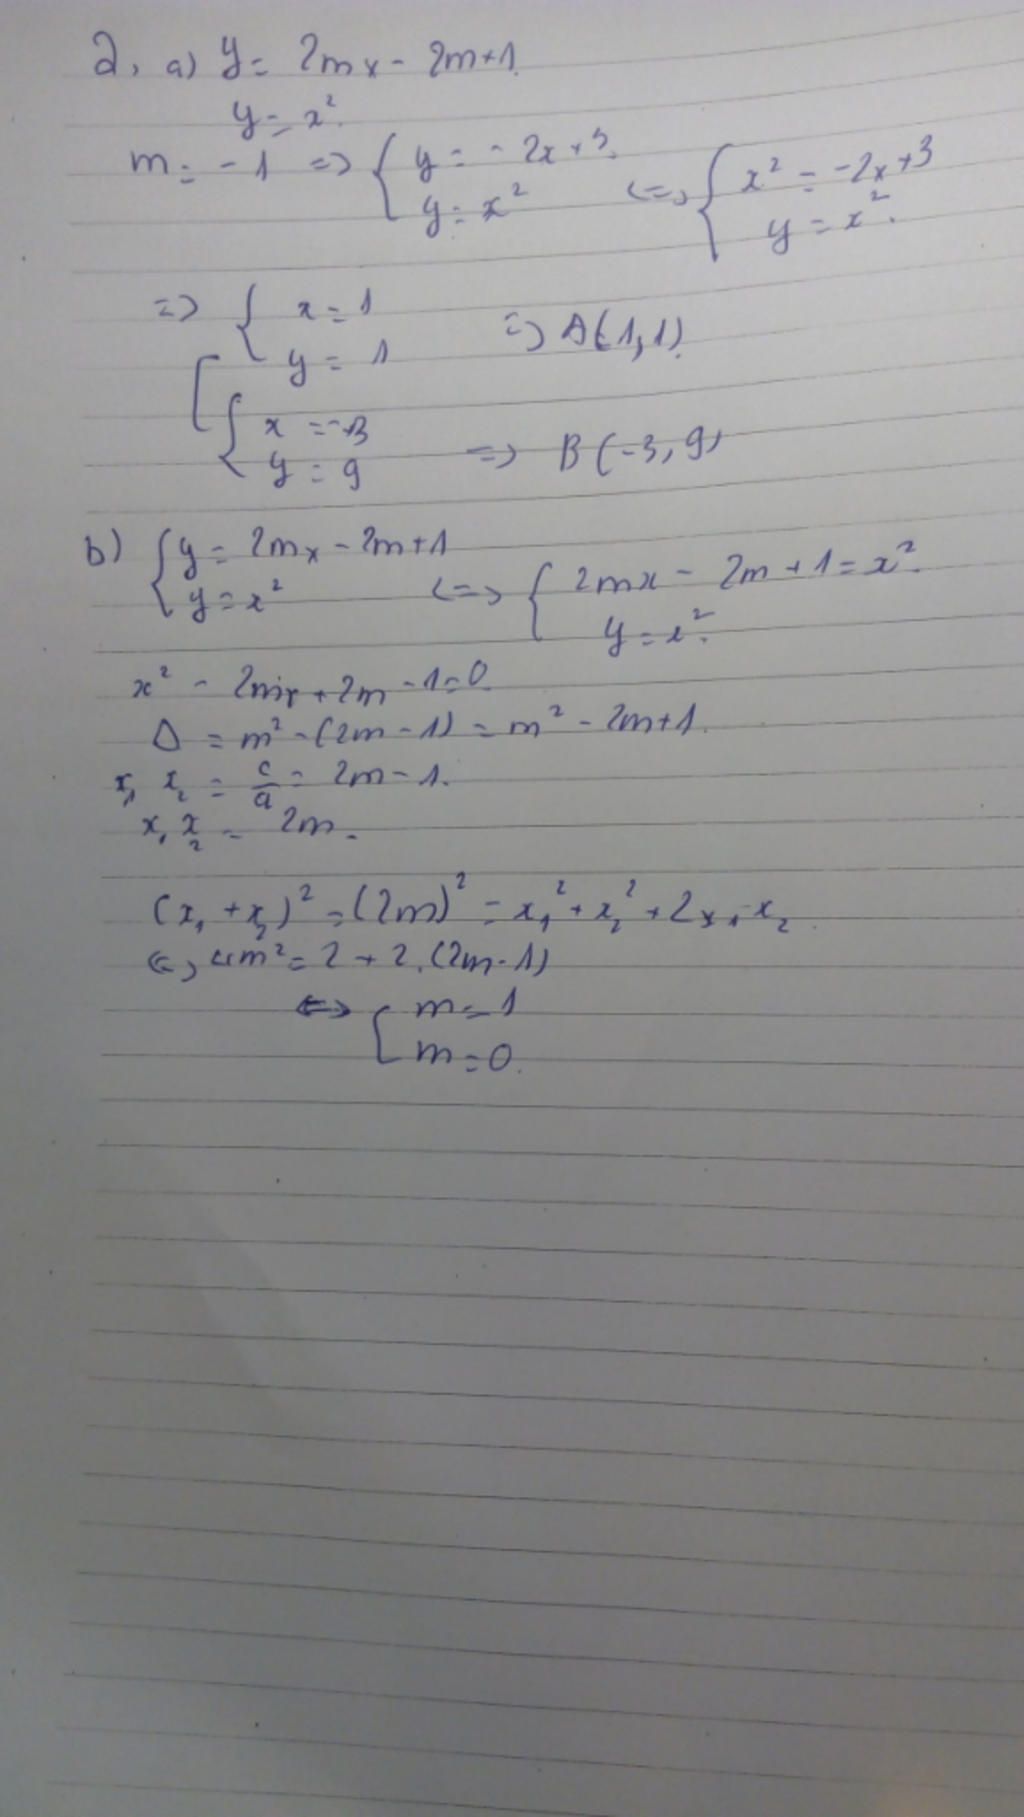 2, a) y = 2mx - 2m+1.
y = x².
m = -1 => { y = -2x+3.
y = x²
<=> { x² = -2x+3
y = x².
=> { x = 1
y = 1
=> A(1,1).
[ { x = -3
y = 9
=> B(-3,9)
b) { y = 2mx - 2m+1
y = x²
<=> { 2mx - 2m+1 = x².
y = x².
x² - 2mx + 2m - 1 = 0.
Δ = m² - (2m - 1) = m² - 2m+1.
x₁ x₂ = c/a = 2m - 1.
x₁ x₂ = 2m.
(x₁ + x₂)² = (2m)² = x₁² + x₂² + 2x₁.x₂.
<=> 4m² = 2 + 2.(2m-1)
<=> [ m = 1
m = 0.